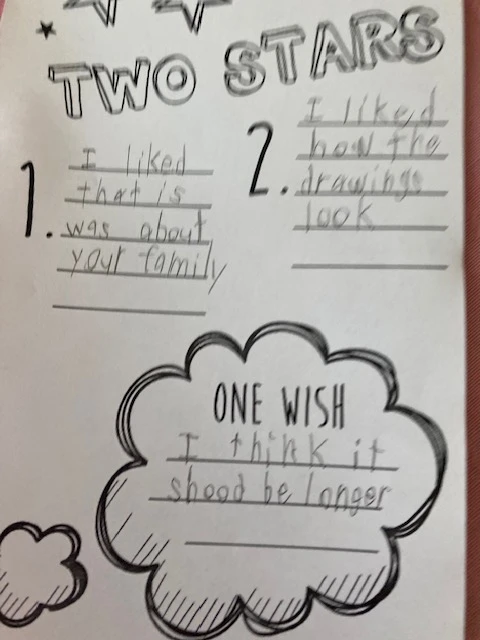 TWO STARS
1.
I liked
that is
was about
your family
2.
I liked
how the
drawings
look
ONE WISH
I think it
shood be longer